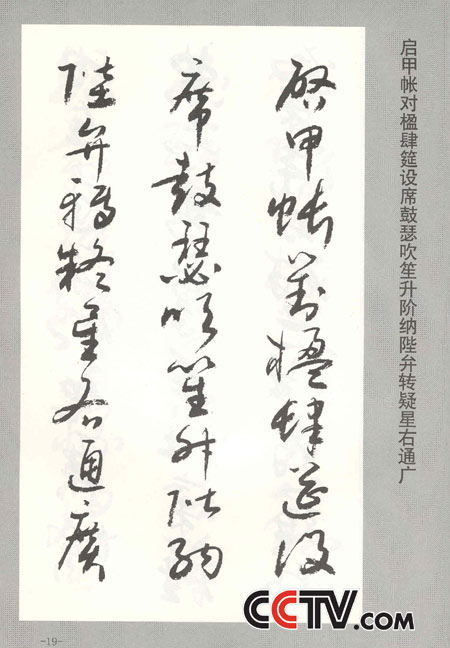 启甲帐对楹肆筵设席鼓瑟吹笙升阶纳陛弁转疑星右通广
啟甲帳對楹肆筵設
席鼓瑟吹笙升階納
陛弁轉疑星右通廣
-19-
CCTV.com